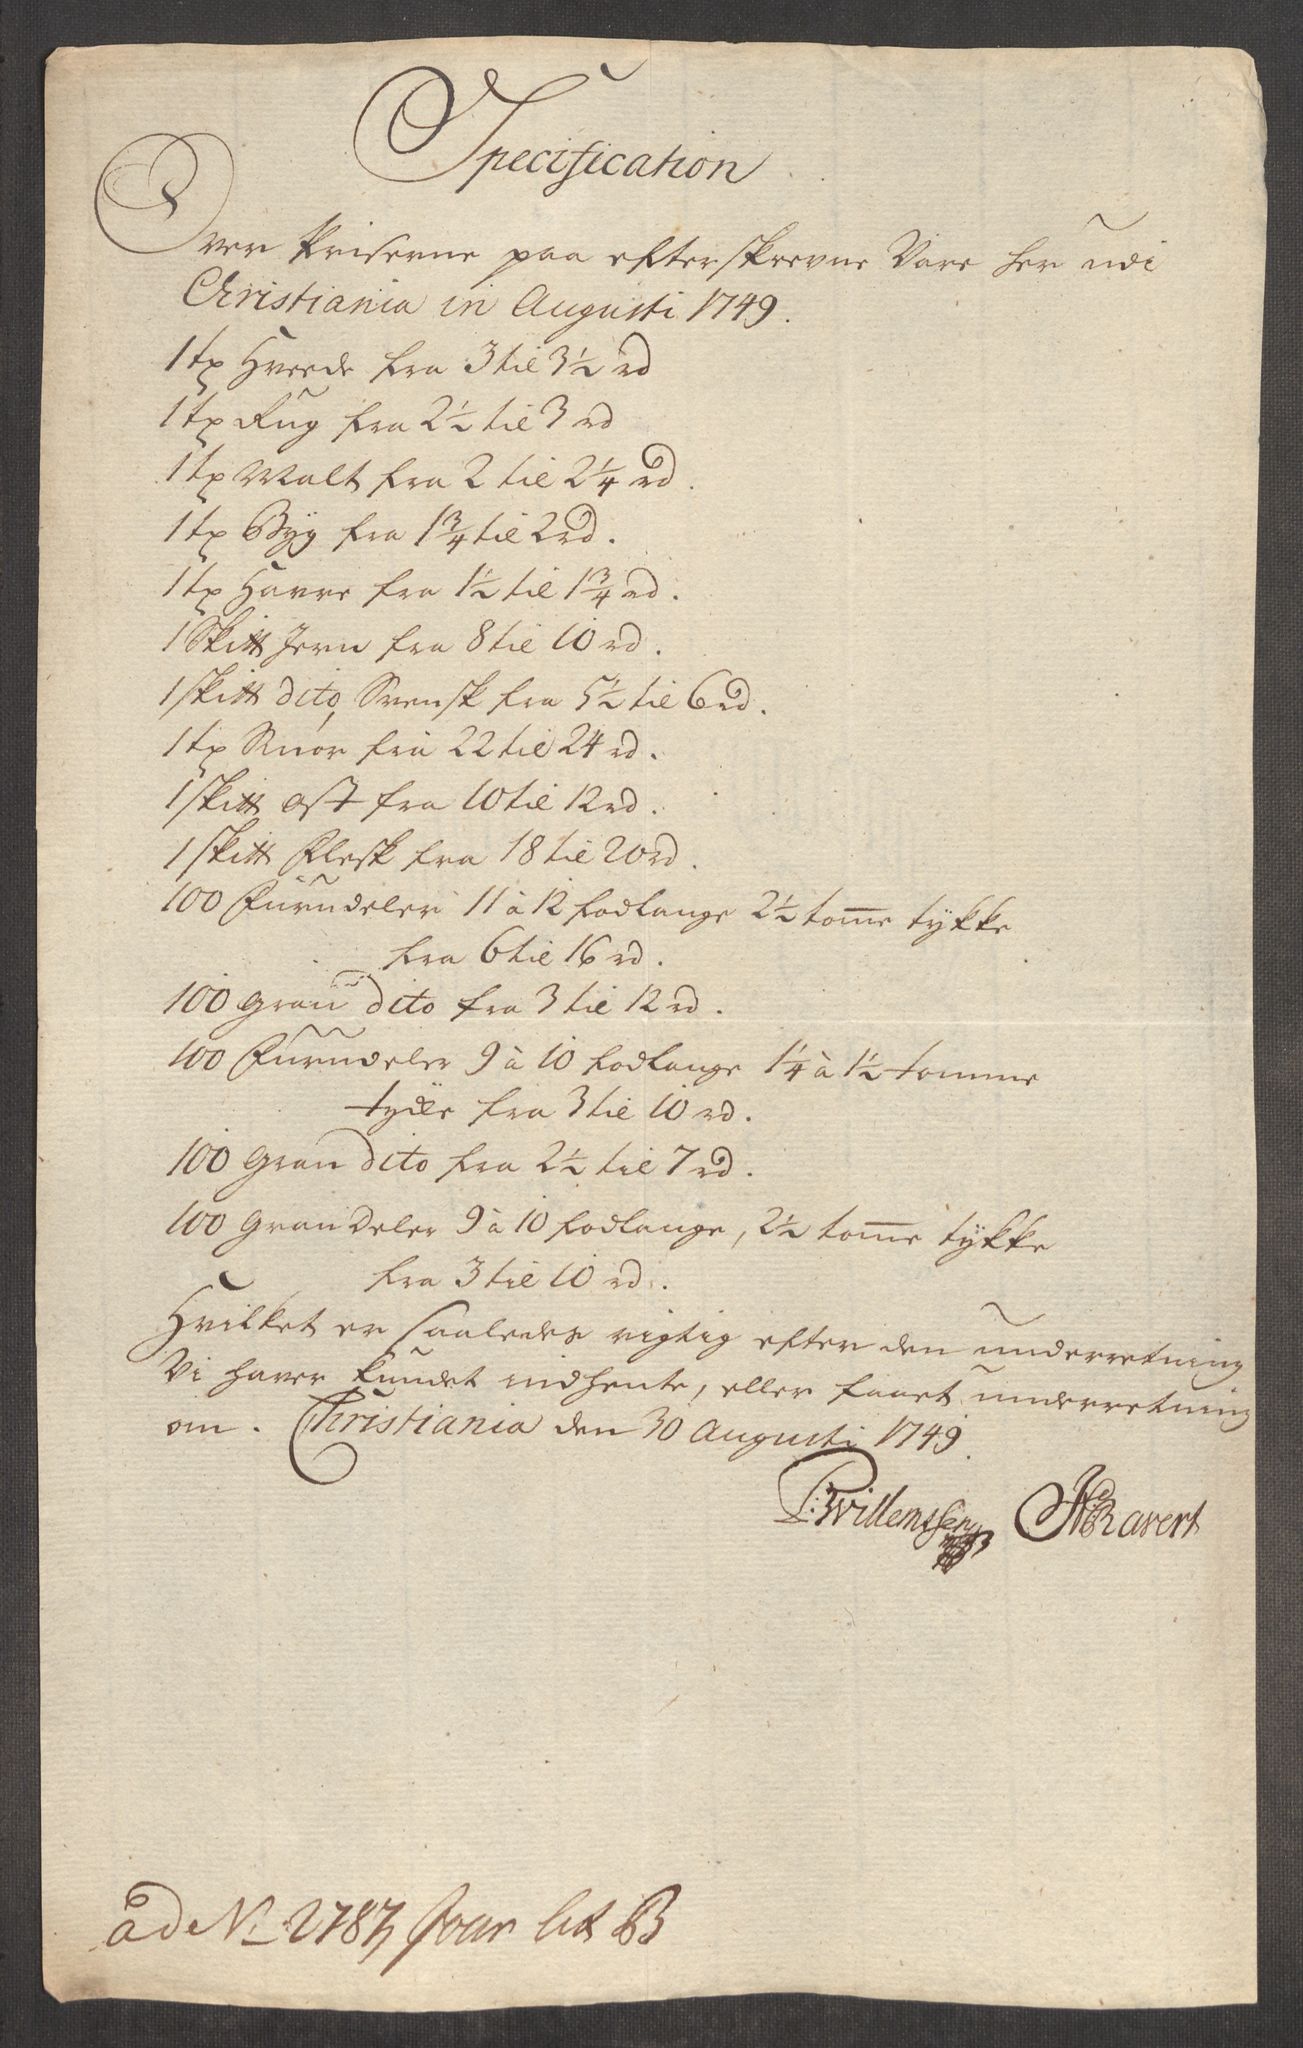 Specification
Over Priserne paa efterskrevne Vare her udi
Christiania in Augusti 1749.
1 tø Hvede fra 3 til 3 1/2 rd
1 tø Rug fra 2 1/2 til 3 rd
1 tø Malt fra 2 til 2 1/4 rd.
1 tø Byg fra 1 3/4 til 2 rd.
1 tø Havre fra 1 1/2 til 1 3/4 rd.
1 Skt Jern fra 8 til 10 rd.
1 skt dito, Svensk fra 5 1/2 til 6 rd.
1 tø Smør fra 22 til 24 rd.
1 skt ost fra 10 til 12 rd.
1 skt Flesk fra 18 til 20 rd.
100 Furudeler 11 à 12 fodlange 2 1/2 tom̅e tykke
fra 6 til 16 rd.
100 gran dito fra 3 til 12 rd.
100 Furudeler 9 à 10 fodlange 1 1/4 à 1 1/2 tomme
tycke fra 3 til 10 rd.
100 gran dito fra 2 1/2 til 7 rd.
100 Gran Deler 9 à 10 fodlange, 2 1/2 tom̅e tykke
fra 3 til 10 rd.
Hvilket er saaledes rigtig efter den underretning
Vi haver kundet indhente, eller faaet underretning
om. Christiania den 30 Augusti 1749.
P: Willemssen Ravert
ad No 2787 Jour lit B